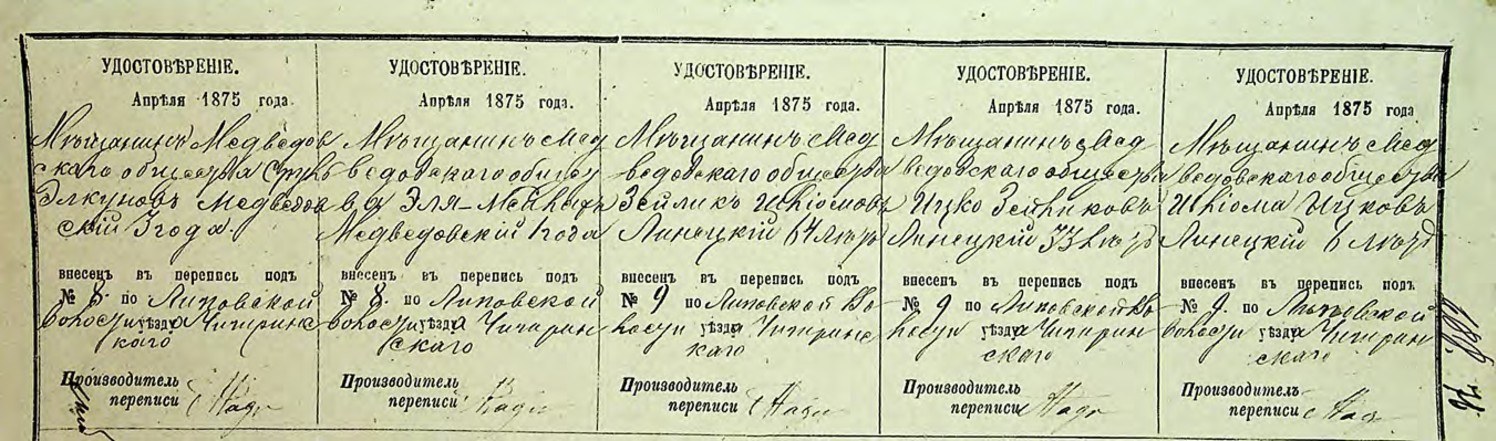 УДОСТОВѢРЕНІЕ.
Апрѣля 1875 года.
Мѣщанинъ Медведов
скаго общества
Элкуновъ Медведов
скій 3 года.
внесенъ въ перепись подъ
№ 8. по Липовской
волости уѣзда Чигринс
каго
Производитель
переписи
УДОСТОВѢРЕНІЕ.
Апрѣля 1875 года.
Мѣщанинъ Мед
ведовскаго общест
ва Эля-
Медведовскій 1 года
внесенъ въ перепись подъ
№ 8. по Липовской
волости уѣзда Чигрин
скаго
Производитель
переписи
УДОСТОВѢРЕНІЕ.
Апрѣля 1875 года.
Мѣщанинъ Мед
ведовскаго общества
Зейликъ Шліомовъ
Линецкій 64 лѣтъ
внесенъ въ перепись подъ
№ 9 по Липовской Во
лости уѣзда Чигринс
каго
Производитель
переписи
УДОСТОВѢРЕНІЕ.
Апрѣля 1875 года.
Мѣщанинъ Мед
ведовскаго общества
Ицко Зейликовъ
Линецкій 33 лѣтъ
внесенъ въ перепись подъ
№ 9 по Липовской Во
лости уѣзда Чигрин
скаго
Производитель
переписи
УДОСТОВѢРЕНІЕ.
Апрѣля 1875 года
Мѣщанинъ Мед
ведовскаго общества
Шліома Ицковъ
Линецкій 6 лѣтъ
внесенъ въ перепись подъ
№ 9. по Липовской
волости уѣзда Чигрин
скаго
Производитель
переписи